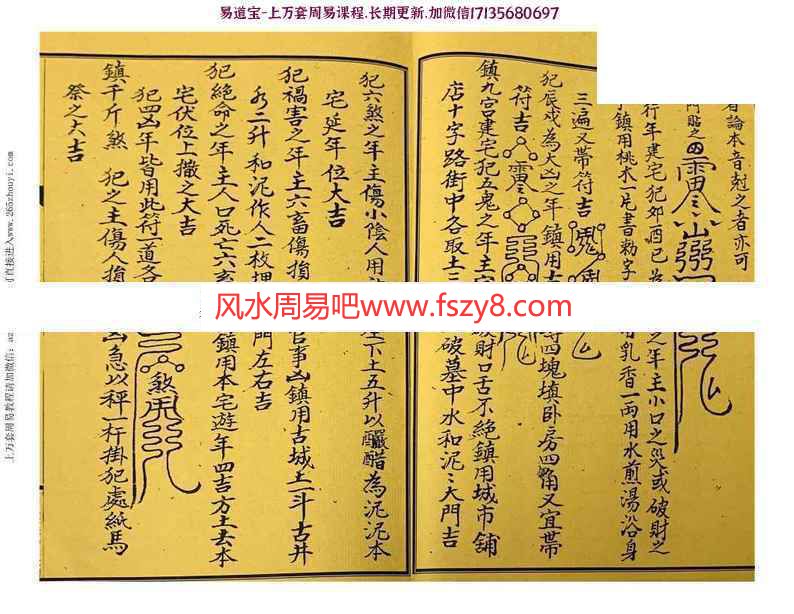 易道宝-上万套周易课程.长期更新.加微信17135680697
者論本音尅之者亦可
行年建宅犯卯酉巳
之年主小口之災或破財之
鎮用桃木一片書勅字
用乳香一两用水煎湯浴身
三遍又带符吉
犯辰戌為大凶之年鎮用
等四塊填卧房四角又宜带
符吉
鎮九宫建宅犯五鬼之年主
破財口舌不絶鎮用城市舖
店十字路街中各取土三
破墓中水和泥
大門吉
犯六煞之年主傷小陰人用
座下土五升以釅醋為泥泥本
宅延年位大吉
犯禍害之年主六畜傷損
官事凶鎮用古城土一斗古井
水二升和泥作人二枚埋
門左右吉
犯絶命之年主人口死亡六畜
鎮用本宅遊年四吉方土去本
宅伏位上撒之大吉
犯四凶年皆用此符一道各
鎮千斤煞
犯之主傷人損
凶急以秤一杆掛犯處紙馬
祭之大吉
风水周易吧www.fszy8.com
上万套周易教程请加微信:
可直接进入www.265zhouyi.com